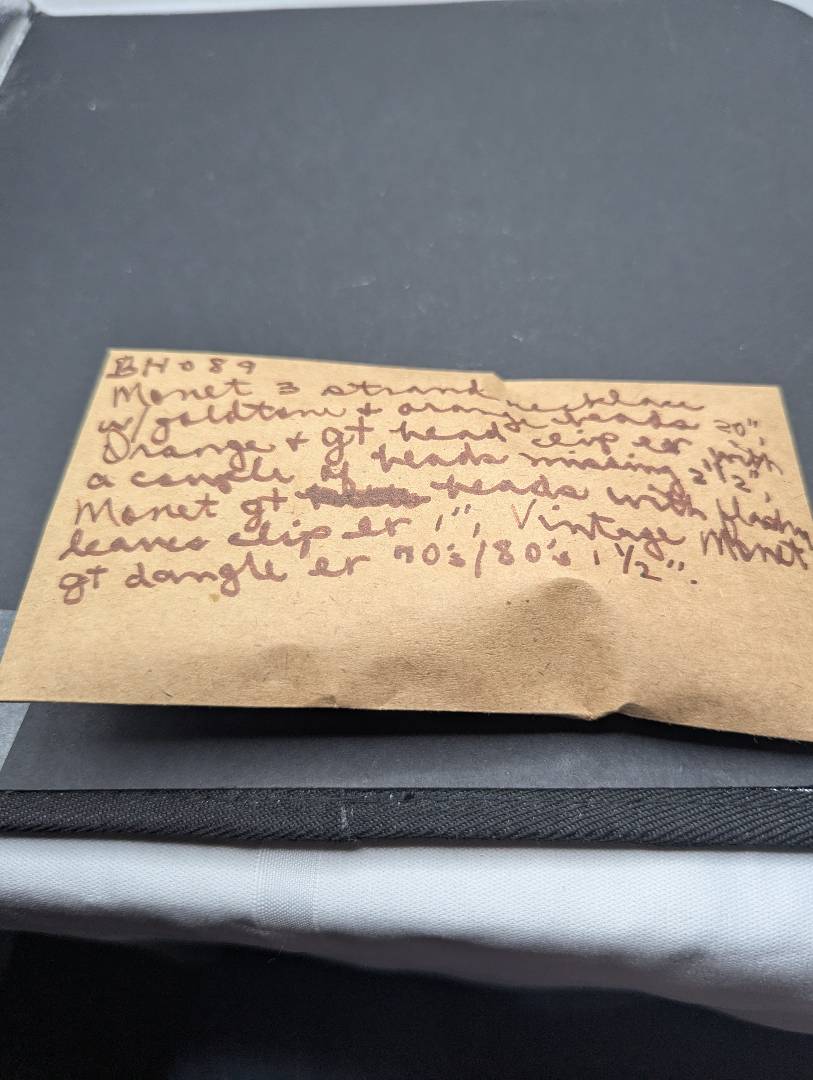 BH089
Monet 3 strand necklace
w/ goldtone & orange beads 20",
Orange & gt bead clip er with
a couple of beads missing 2 1/2",
Monet gt beads with
leaves clip er 1", Vintage Monet
gt dangle er 70's/80's 1 1/2".